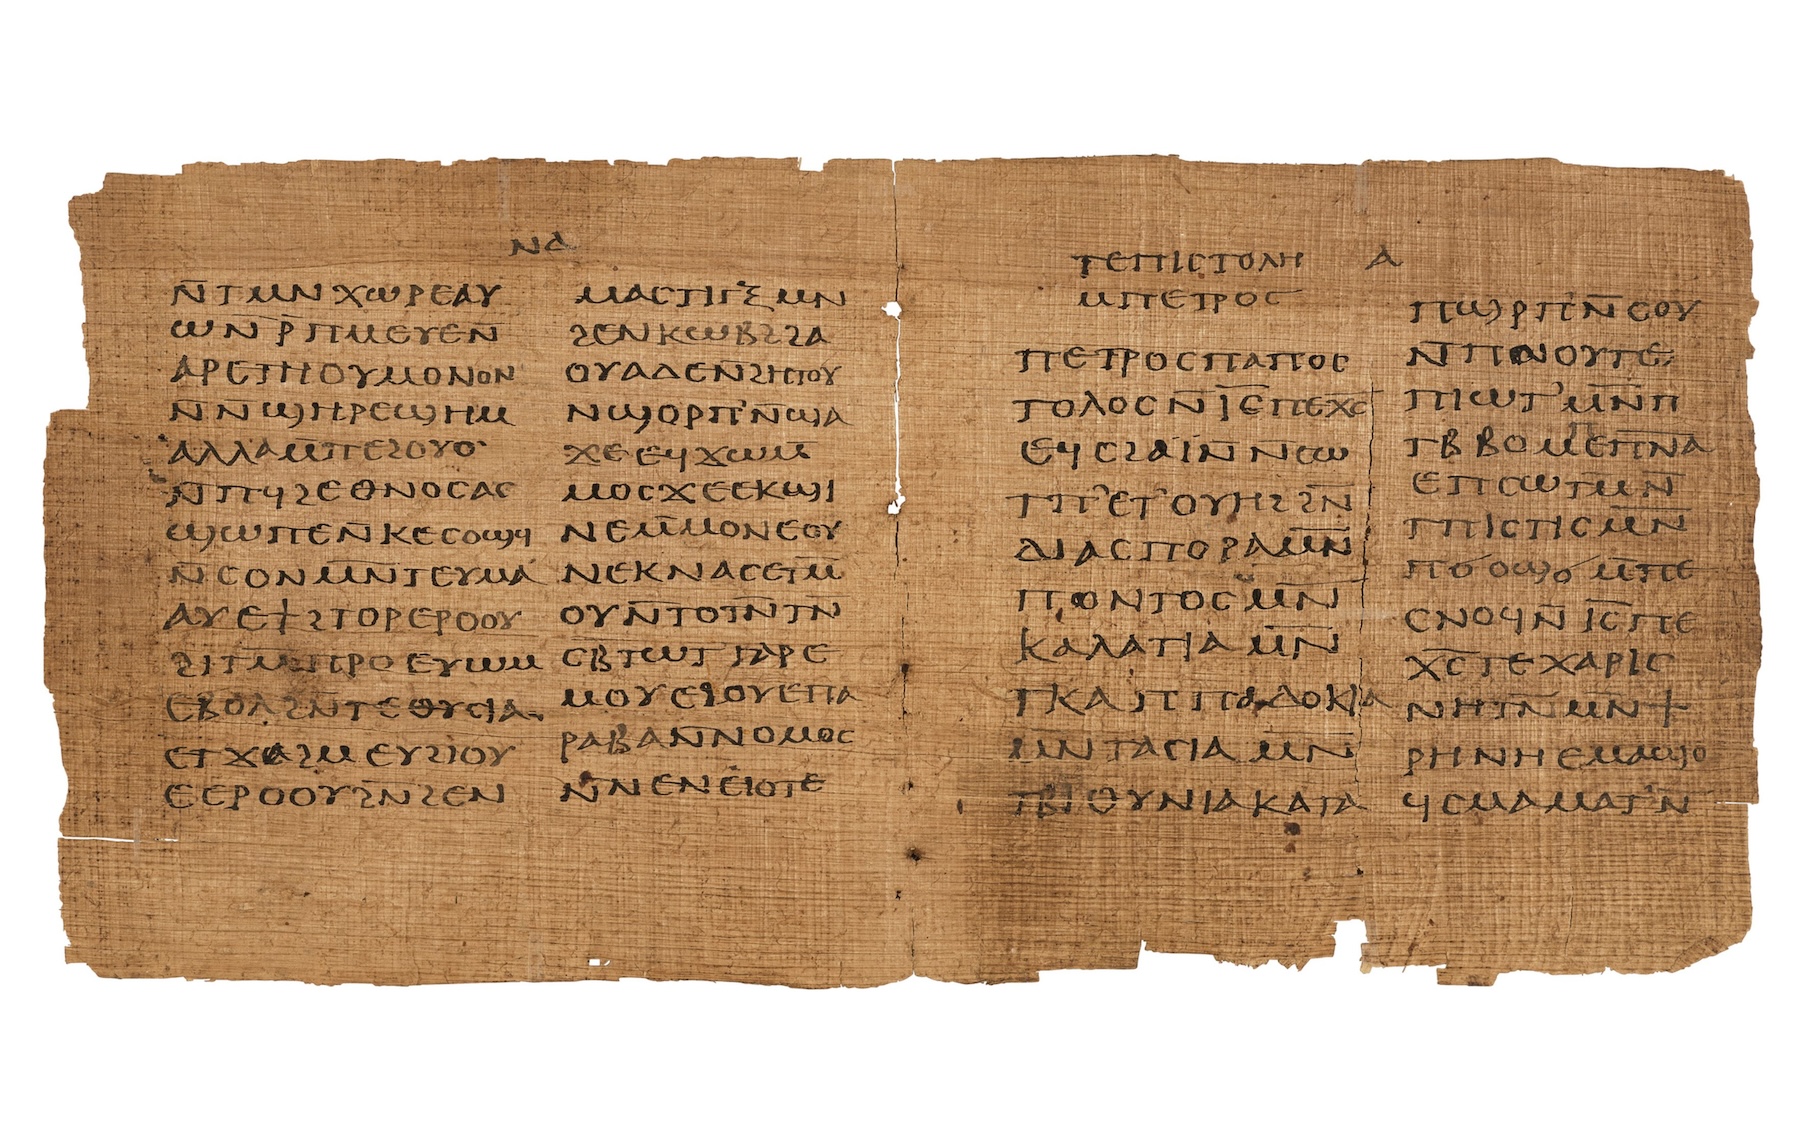 ⲛⲁ
ⲛ̄ⲧⲙⲛⲭⲱⲣⲉⲁⲩ
ⲱⲛ̄ⲣ̄ⲡⲙⲉⲩⲉⲛ̄
ⲁⲣⲉⲧⲏⲟⲩⲙⲟⲛⲟⲛ
ⲛ̄ⲛ̄ϣⲏⲣⲉϣⲏⲙ
ⲁⲗⲗⲁⲙ̄ⲡⲉϩⲟⲩⲟ
ⲛ̄ⲡϥϩⲉⲑⲛⲟⲥⲁⲥ
ϣⲱⲡⲉⲛ̄ⲕⲉⲥⲟⲡϥ
ⲛ̄ⲥⲟⲛⲙⲛ̄ⲧⲉⲩⲙⲁ
ⲁⲩⲉϯϩⲧⲟⲣⲉⲣⲟⲟⲩ
ϩⲓⲧⲙ̄ⲡⲣⲟⲉⲩⲱⲙ
ⲉⲃⲟⲗϩⲛ̄ⲧⲉⲑⲩⲥⲓⲁ
ⲉⲧϫⲁϩⲙⲉⲩϩⲓⲟⲩ
ⲉⲉⲣⲟⲟⲩϩⲛ̄ϩⲉⲛ
ⲙⲁⲥⲧⲓⲅⲝⲙⲛ
ϩⲉⲛⲕⲱⲃϩϩⲁ
ⲟⲩⲁⲇⲉⲛ̄ϩⲏⲧⲟⲩ
ⲛϣⲟⲣⲡ'ⲛ̄ϣⲁ
ϫⲉⲉϥϫⲱⲙ̄
ⲙⲟⲥϫⲉⲉⲕϣⲓ
ⲛⲉⲙ̄ⲙⲟⲛⲉⲟⲩ
ⲛⲉⲕⲛⲁⲥⲉⲧⲙ̄
ⲟⲩⲛ̄ⲧⲟⲧⲛ̄ⲧⲛ̄
ⲥⲃ̄ⲧⲱⲧ'ⲡⲁⲣⲉ
ⲙⲟⲩⲉϩⲟⲩⲉⲡⲁ
ⲣⲁⲃⲁⲛⲛⲟⲙⲟⲥ
ⲛ̄ⲛⲉⲛⲉⲓⲟⲧⲉ
ⲧⲉⲡⲓⲥⲧⲟⲗⲏ ⲁ
ⲙⲡⲉⲧⲣⲟⲥ
ⲡⲉⲧⲣⲟⲥⲡⲁⲡⲟⲥ
ⲧⲟⲗⲟⲥⲛ̄ⲓ̄ⲥ̄ⲡⲉⲭⲥ
ⲉϥⲥϩⲁⲓ̈ⲛ̄ⲛⲥⲱ
ⲧⲡ'ⲉⲧ'ⲟⲩⲏϩϩⲛ̄
ⲇⲓⲁⲥⲡⲟⲣⲁⲙⲛ̄
ⲡⲟⲛⲧⲟⲥⲙⲛ̄
ⲕⲁⲗⲁⲧⲓⲁⲙⲛ̄
ⲧⲕⲁⲡⲡⲁⲇⲟⲕⲓⲁ
ⲙⲛ̄ⲧⲁⲥⲓⲁⲙⲛ̄
ⲧⲃⲓⲑⲩⲛⲓⲁⲕⲁⲧⲁ
ⲡϣⲣⲡ'ⲛ̄ⲥⲟⲩ
ⲛ̄ⲡⲛⲟⲩⲧⲉ
ⲡⲓⲱⲧ'ⲙⲛ̄ⲡ
ⲧⲃⲃⲟⲙⲉⲡⲛ̄ⲁ
ⲉⲡⲥⲱⲧⲙ̄ⲛ̄
ⲧⲡⲓⲥⲧⲓⲥⲙⲛ̄
ⲡϭⲟϣϭ̄ⲙ̄ⲡⲉ
ⲥⲛⲟϥⲛ̄ⲓ̄ⲥ̄ⲡⲉ
ⲭ̄ⲥ̄ⲧⲉⲭⲁⲣⲓⲥ
ⲛⲏⲧⲛ̄ⲙⲛ̄ϯ
ⲣⲏⲛⲏⲉⲙⲁϣⲟ
ϥⲥⲙⲁⲙⲁⲧ'ⲛ̄